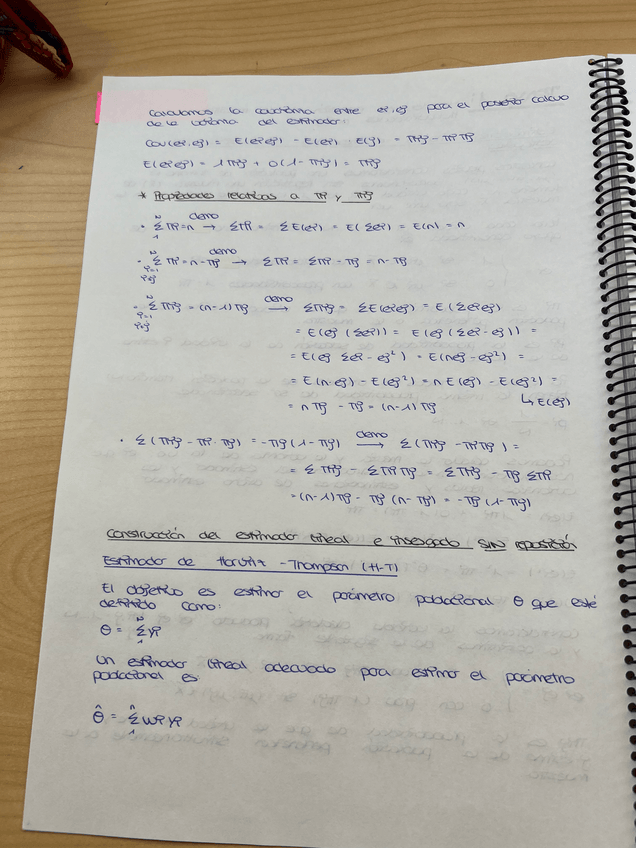 Calculamos la covarianza entre ei, ej para el posterior cálculo
de la varianza del estimador:
Cov(ei, ej) = E(ei ej) - E(ei) · E(ej) = πij - πi πj
E(ei ej) = 1 πij + 0(1 - πij) = πij
* Propiedades relativas a πi y πij
· N Σ 1 πi = n demo → Σπi = ΣE(ei) = E(Σei) = E(n) = n
· N Σ i=1 i≠j πi = n - πj demo → Σπi = Σπi - πj = n - πj
· N Σ i=1 i≠j πij = (n-1)πj demo → Σπij = ΣE(ei ej) = E(Σei ej)
= E(ej (Σei)) = E(ej (Σei - ej)) =
= E(ej Σei - ej²) = E(nej - ej²) =
= E(n·ej) - E(ej²) = n E(ej) - E(ej²) =
↳ E(ej)
= n πj - πj = (n-1) πj
· Σ(πij - πi·πj) = -πj(1-πj) demo → Σ(πij - πiπj) =
= Σπij - Σπiπj = Σπij - πj Σπi
= (n-1)πj - πj(n-πj) = -πj(1-πj)
Construcción del estimador lineal e insesgado SIN reposición
Estimador de Horvitz - Thompson (H-T)
El objetivo es estimar el parámetro poblacional θ que esté
definido como:
θ = N Σ 1 yi
Un estimador lineal adecuado para estimar el parámetro
poblacional es
θ̂ = n Σ 1 wi yi